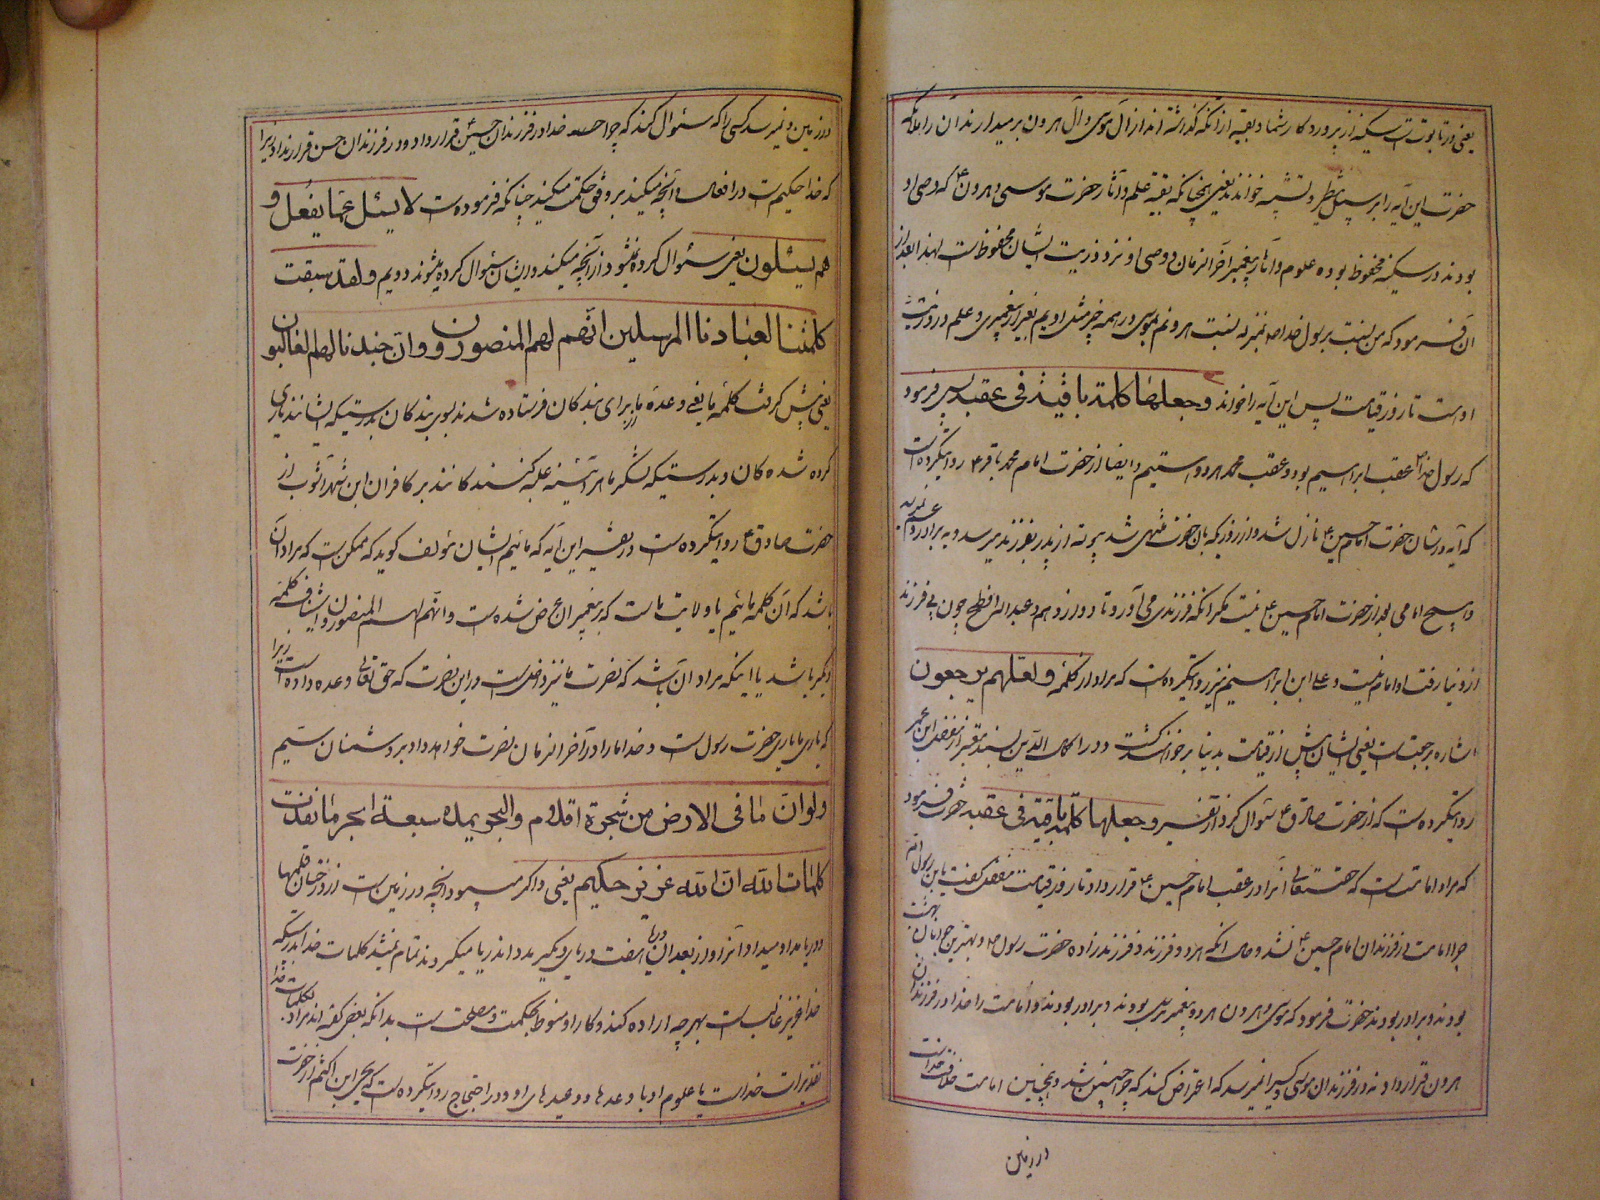 یعنی در تابوت است سکینه از پروردگار شما و بقیه از آنکه گذاشته اند از آل موسی و آل هرون بر میدارند آن را ملائکه
حضرت این آیه را بر سبیل و تشبیه خواندند یعنی چنانکه بقیه علم و آثار حضرت موسی و هرون ع که وصی او
بودند در سکینه محفوظ بوده علوم و آثار پیغمبر آخرالزمان و وصی او نزد ذریت ایشان محفوظ است لهذا بعد از
آن فرمود که من نسبت برسول خدا ص بمنزله نسبت هرونم بموسی در همه چیز مثل اویم بغیر از پیغمبری و علم در ذریت
اوست تا روز قیامت پس این آیه را خواند وجعلها کلمة باقیة فی عقبه پس فرمود
که رسول خدا ص عقب ابراهیم بود و عقب محمد هر دو هستیم و ایضا از حضرت امام محمد باقر ع روایتکرده است
که آیه در شان حضرت امام حسین ع نازل شد و از روزیکه بآن حضرت منتهی شد پیوسته از پدر بفرزند میرسد و به برادر و عم نمیرسد
و هیچ امامی بعد از حضرت امام حسین ع نیست مگر آنکه فرزندی می آورد تا دوازدهم و عبدالله افطح چون بی فرزند
از دنیا رفت او امام نیست و علی ابن ابراهیم نیز روایتکرده است که مراد از کلمه و لعلهم یرجعون
اشاره برجعت است یعنی ایشان پیش از قیامت بدنیا برخواهند گشت و در اکمال الدین بسند معتبر از مفضل ابن عمر
روایتکرده است که از حضرت صادق ع سئوال کرد از تفسیر وجعلها کلمة باقیة فی عقبه حضرت فرمود
که مراد امامت است که حقتعالی آنرا در عقب امام حسین ع قرار داد تا روز قیامت مفضل گفت یابن رسول الله
چرا امامت در فرزندان امام حسین ع شد و حال آنکه هر دو فرزند و فرزندزاده حضرت رسول ص و بهترین جوانان بهشت
بودند و برادر بودند حضرت فرمود که موسی و هرون هر دو پیغمبر مرسل بودند و برادر بودند و امامت را خدا در فرزندان
هرون قرار داد نه در فرزندان موسی و کسیرا نمیرسد که اعتراض کند که چرا چنین شد و همچنین امامت خلافت خداست
در زمین
در زمین و نمیرسد کسی را که سئوال کند که چرا خدا در فرزندان حسین قرار داد و در فرزندان حسن قرار نداد زیرا
که خدا حکیم است در افعال و آنچه میکند بر وفق حکمت میکند چنانکه فرموده است لا یسئل عما یفعل و
هم یسئلون یعنی سئوال کرده نمیشود از آنچه میکند و ایشان سئوال کرده میشوند دویم ولقد سبقت
کلمتنا لعبادنا المرسلین انهم لهم المنصورون وان جندنا لهم الغالبون
یعنی پیش گرفت کلمه ما یعنی وعده ما برای بندگان فرستاده شدند بسوی بندگان بدرستیکه ایشانند یاری
کرده شده گان و بدرستیکه لشکر ما هر آئینه غلبه کنندگانند بر کافران ابن شهرآشوب از
حضرت صادق ع روایتکرده است در تفسیر این آیه که مائیم ایشان مؤلف گوید که ممکن است که مراد آن
باشد که آن کلمه مائیم یا ولایت ماست که بر پیغمبران عرض شده است و انهم لهم المنصورون استیناف کلمه
دیگر باشد یا اینکه مراد آن باشد که نصرت ما نیز داخل است در این نصرت که حق تعالی وعده داده است زیرا
که یاری ما یاری حضرت رسول است و خدا ما را در آخر الزمان نصرت خواهد داد بر دشمنان سیم
ولو ان ما فی الارض من شجرة اقلام والبحر یمده سبعة ابحر ما نفدت
کلمات الله ان الله عزیز حکیم یعنی و اگر میبود آنچه در زمین است از درختان قلمها
و دریا مداد و میداد آنرا و از بعد آن دریا هفت دریای دیگر مدد اند ریا میکردند تمام نمیشد کلمات خدا بدرستیکه
خدا عزیز غالبست بهر چه اراده کند و کار او منوط بحکمت و مصلحت است بدانکه بعضی گفته اند مراد بکلمات خدا
تقدیرات خداست یا علوم او یا وعدها و وعیدهای او و در احتجاج روایتکرده است که یحیی ابن اکثم از حضرت